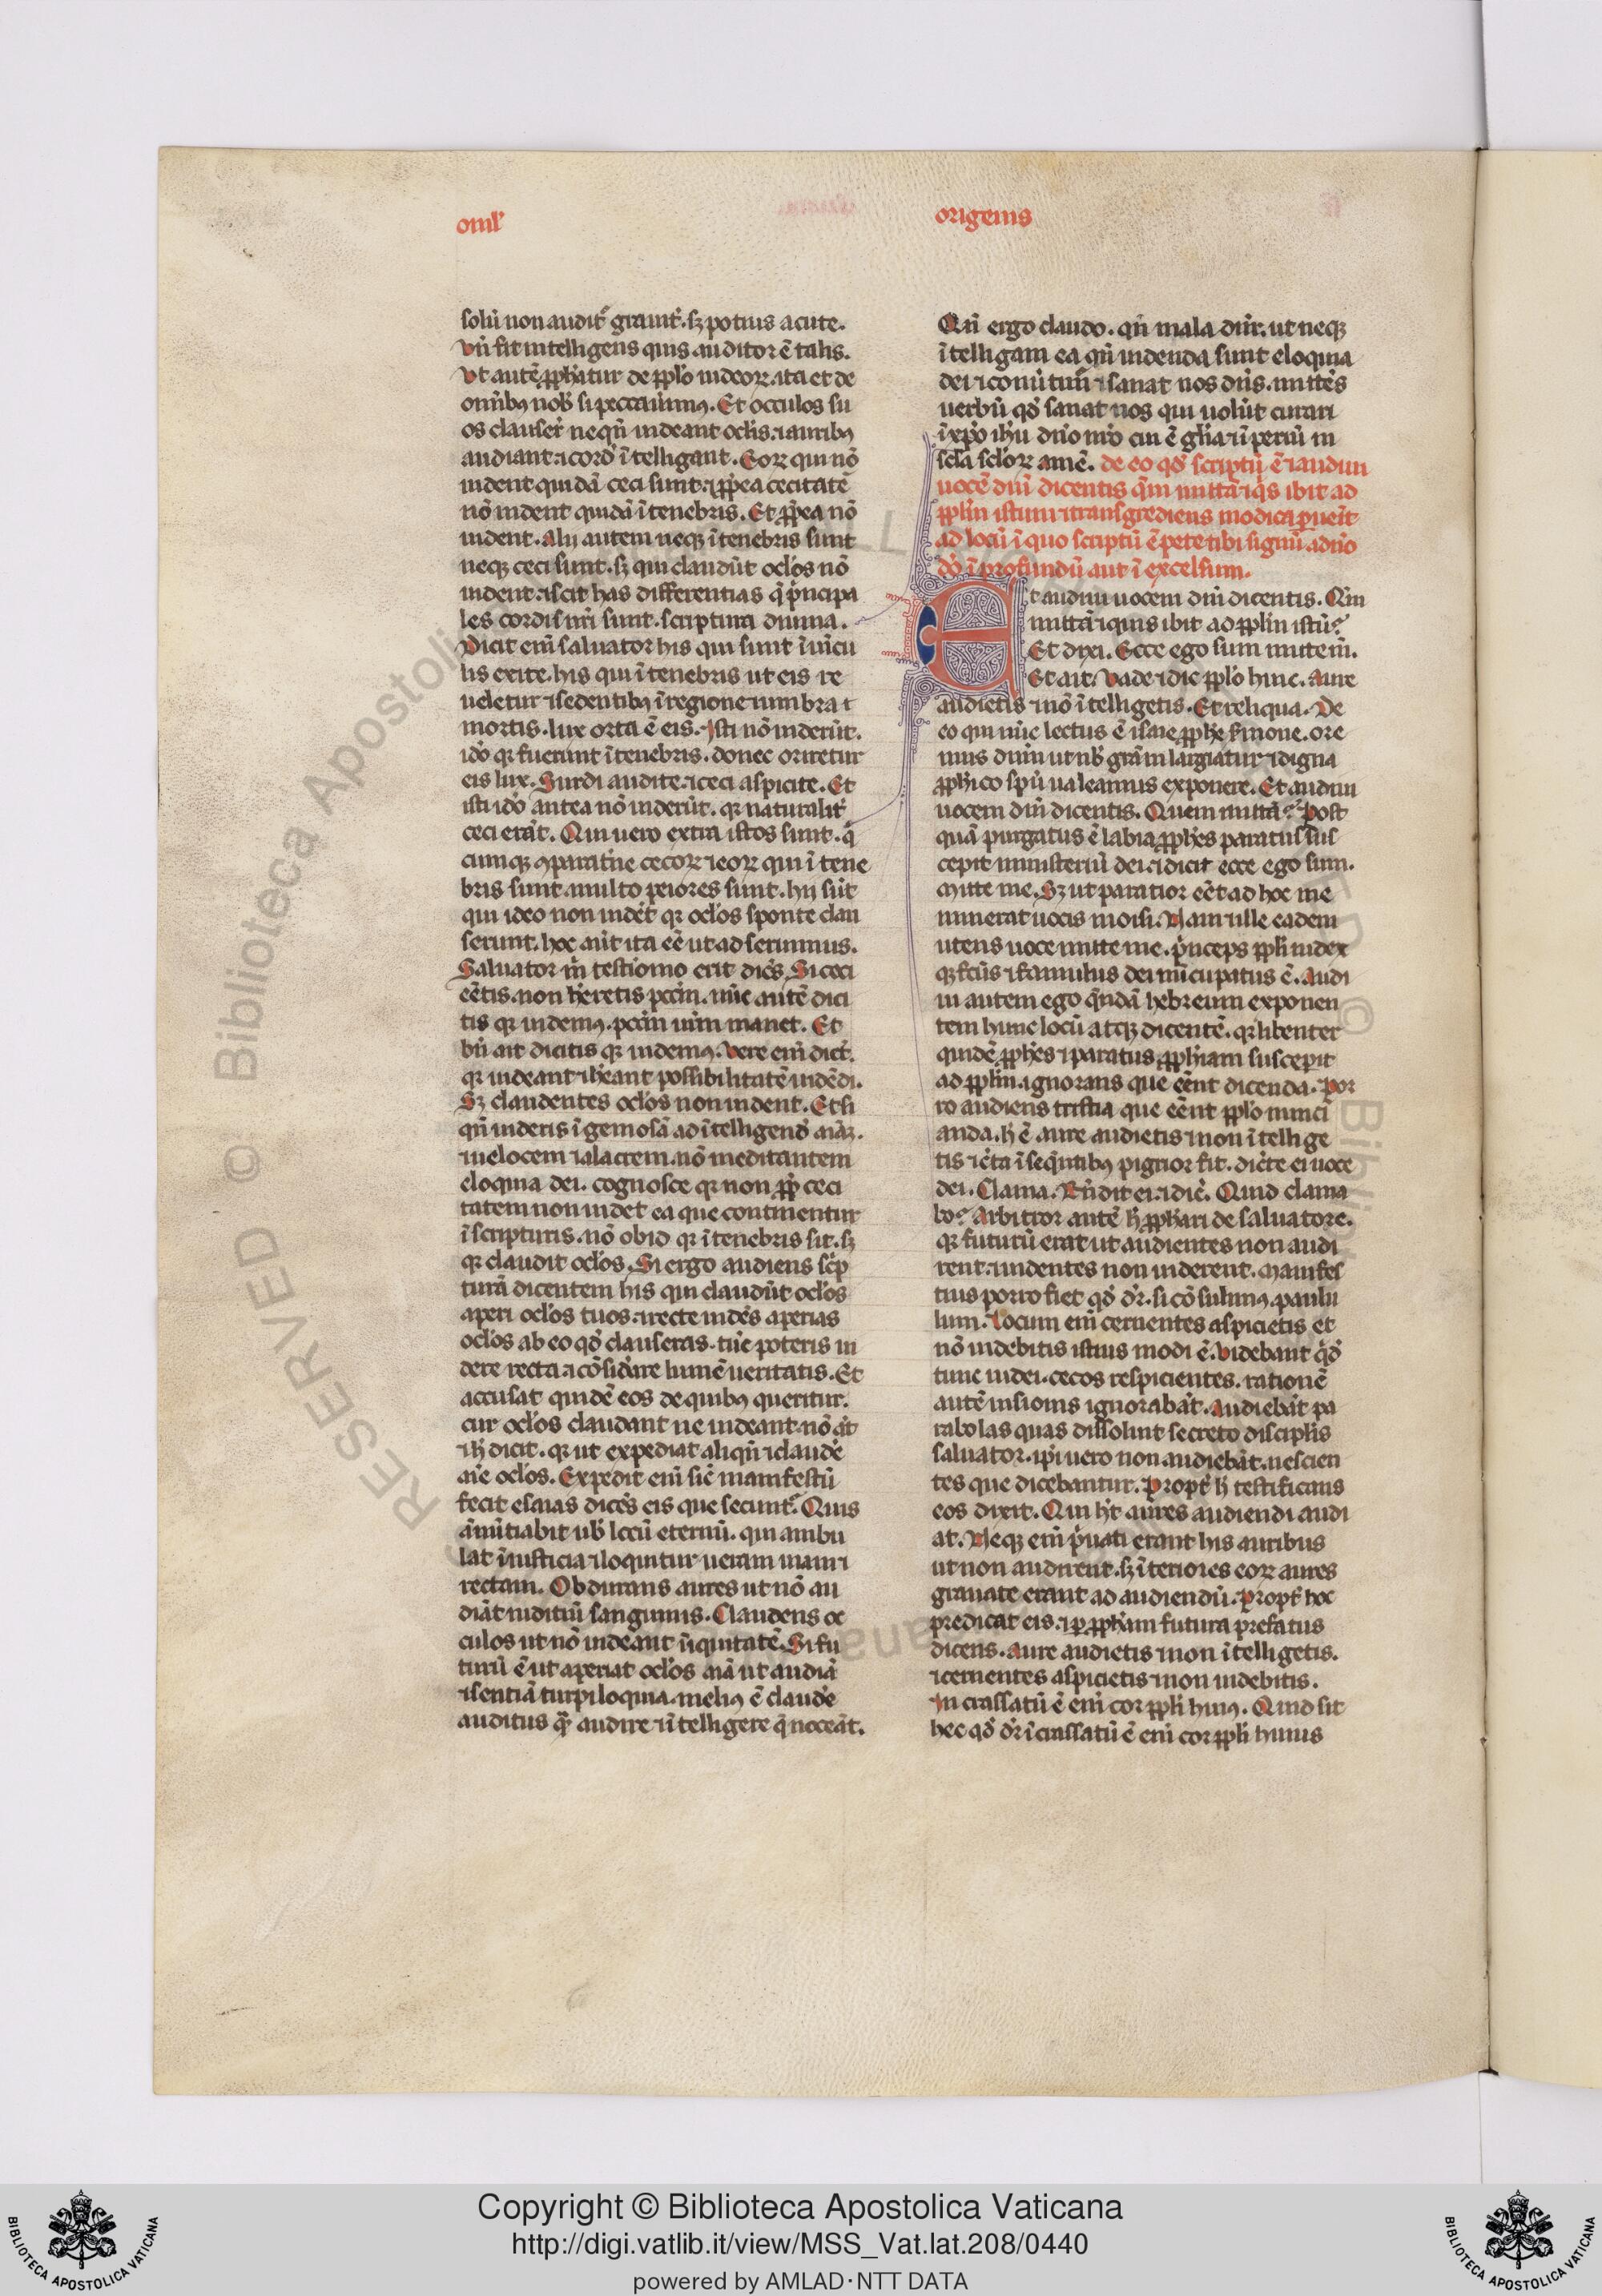 oml'
origenis
solū non audit̃ grauit̃. sꝫ potius acute.
Vn̄ fit intelligens quis auditor ē talis.
Vt autē ꝓph̃atur de pplo iudeoꝝ. ita et de
omībꝰ nob̃ si peccauimꝰ. Et occulos su
os clauser̃t nequn̄ uideant ocl̃is. ⁊ auribꝰ
audiant. ⁊ corde ītelligant. Eoꝝ qui nō
uident quidā ceci sunt. ⁊ ꝓpt̃ea cecitatē
nō uident quidā ī tenebris. Et ꝓpt̃ea nō
uident. Alij autem neqꝫ ī tenebris sunt
neqꝫ ceci sunt. sꝫ qui claudūt ocl̃os nō
uident. ⁊ scit has differentias q̄ p̃ncipa
les cordis ur̃i sunt. scriptura diuina.
Dicit em̄ saluator his qui sunt ī uīcu
lis exite. his qui ī tenebris ut eis re
ueletur ⁊ sedentibꝰ ī regione umbra ⁊
mortis. lux orta ē eis. Isti nō uiderūt.
ido qꝛ fuerunt ī tenebris. donec oriretur
eis lux. Surdi audite. ⁊ ceci aspicite. Et
isti ido antea nō uiderūt. qꝛ naturalit̃
ceci erāt. Qui uero extra istos sunt. q̄
cumqꝫ ꝯparatiōe cecoꝝ ⁊ eoꝝ qui ī tene
bris sunt. multo peiores sunt. hij sūt
qui ideo non uidēt qꝛ ocl̃os sponte clau
serunt. hoc aūt ita eē ut adserimus.
Saluator m̃ testiōio erit dicēs. Si ceci
eētis. non hēretis pcc̄m. nūc autē dici
tis qꝛ uidemꝰ. pcc̄m ur̃m manet. Et
bn̄ ait dicitis qꝛ uidemꝰ. Vere em̄ dict̃.
qꝛ uideant ⁊ hēant possibilitatē uidēdi.
Sꝫ claudentes ocl̃os non uident. Et si
qn̄ uideris īgeniosā ad ītelligend̃ aīaꝫ.
⁊ uelocem ⁊ alacrem. nō meditantem
eloquia dei. cognosce qꝛ non ꝓpt̃ ceci
tatem non uidet ea que continentur
ī scripturis. nō ob id qꝛ ī tenebris sit. sꝫ
qꝛ claudit ocl̃os. Si ergo audiens sc̃p
turā dicentem his qui claudūt ocl̃os
aperi ocl̃os tuos. ⁊ recte uidēs aperias
ocl̃os ab eo qd̃ clauseras. tūc poteris ui
dere recta. ⁊ cōsid̃are lumē ueritatis. Et
accusat quidē eos de quibꝰ queritur.
cur ocl̃os claudant ne uideant. nō ait
⁊ h̃ dicit. qꝛ ut expediat aliqn̄ ⁊ claude
aīe ocl̃os. Expedit em̄ sic̄ manifestū
fecit esaias dicēs eis que secunt̃. Quis
ānūtiabit ub̃ locū eternū. qui ambu
lat ī iusticia ⁊ loquitur ueram uiam ⁊
rectam. Obdurans aures ut nō au
diāt iuditiū sanguinis. Claudens oc
culos ut nō uideant īiquitatē. Si fu
turū ē ut aperiat ocl̃os aīa ut audiā
⁊ sentiā turpiloquia. melius ē claude
auditus q̃ꝫ audire ⁊ ītelligere q̄ noceāt.
Qn̄ ergo claudo. qn̄ mala dn̄r. ut neqꝫ
ītelligam ea qn̄ uidenda sunt eloquia
dei ⁊ conūtim̃ ⁊ sanat nos dn̄s. mittēs
uerbū qd̃ sanat nos qui uolūt curari
ī xp̃o ih̃u dn̄o nr̃o cui ē gl̃ia ⁊ īperiū in
sc̃la sc̃loꝝ amē. de eo qd̃ scriptū ē ⁊ audiui
uocē dn̄i dicentis qm̄ mittā ⁊ qis ibit ad
pplm̄ istum ⁊ transgrediens modica ꝑueīt
ad locū ī quo scriptū ē pete tibi signū a dn̄o
do ī profundū aut ī excelsum.
Et audiui uocem dn̄i dicentis. Qm̄
mittā ⁊ quis ibit ad pplm̄ istū?
Et dixi. Ecce ego sum mittem̄.
Et ait. Vade ⁊ dic pplo huic. Aure
audietis ⁊ nō ītelligetis. Et reliqua. De
eo qui nūc lectus ē isaie ꝓphe s̃mone. ore
mus dn̄m ut nb̃ grām largiatur ⁊ digna
ꝓphico sp̃u ualeamus exponere. Et audiui
uocem dn̄i dicentis. Quem mittā? Post
quā purgatus ē labia ꝓphēs paratus sus
cepit ministeriū dei. ⁊ dicit ecce ego sum.
Mitte me. Sꝫ ut paratior eēt ad hoc me
minerat uocis moisi. Nam ille eadem
utens uoce mitte me. p̃nceps ppl̃i iudex
qꝫ fc̃us ⁊ famulus dei nūcupatus ē. Audi
ui autem ego q̄ndā hebreum exponen
tem hunc locū atqꝫ dicentē. qꝛ libenter
quidē ꝓphēs ⁊ paratus ꝓph̃iam suscepit
ad pplm̄. ignorans que eēnt dicenda. Por
ro audiens tristia que eēnt pplo nunci
anda. h̃ ē aure audietis ⁊ non ītellige
tis ⁊ cēta ī seq̄ntibꝰ pigrior fit. dicēte ei uoce
dei. Clama. Rñdit ei. ⁊ dic̄. Quid clama
bo? Arbitror autē h̃ ꝓph̃ari de saluatore.
qꝛ futurū erat ut audientes non audi
rent. ⁊ uidentes non uiderent. Manifes
tius porro fiet qd̃ dr̃. si cōsulimꝰ paulu
lum. Locum em̄ cernentes aspicietis et
nō uidebitis istius modi ē. Videbant qd̃
tunc iudei. cecos respicientes. rationē
autē uisionis ignorabāt. Audiebāt pa
rabolas quas dissoluit secreto discipl̃is
saluator. ip̃i uero non audiebāt. nescien
tes que dicebantur. Propt̃ h̃ testificans
eos dixit. Qui ht̃ aures audiendi audi
at. Neqꝫ em̄ p̃uati erant his auribus
ut non audirent. sꝫ īteriores eoꝝ aures
grauate erant ad audiendū. Propt̃ hoc
predicat eis. ⁊ ꝑ ꝓph̃am futura prefatus
dicens. Aure audietis ⁊ non ītelligetis.
⁊ cernentes aspicietis ⁊ non uidebitis.
In crassatū ē em̄ cor ppl̃i huiꝰ. Quid sit
hec qd̃ dr̃ īcrassatū ē em̄ cor ppl̃i huius
Copyright © Biblioteca Apostolica Vaticana
http://digi.vatlib.it/view/MSS_Vat.lat.208/0440
powered by AMLAD·NTT DATA
BIBLIOTECA APOSTOLICA VATICANA
BIBLIOTECA APOSTOLICA VATICANA